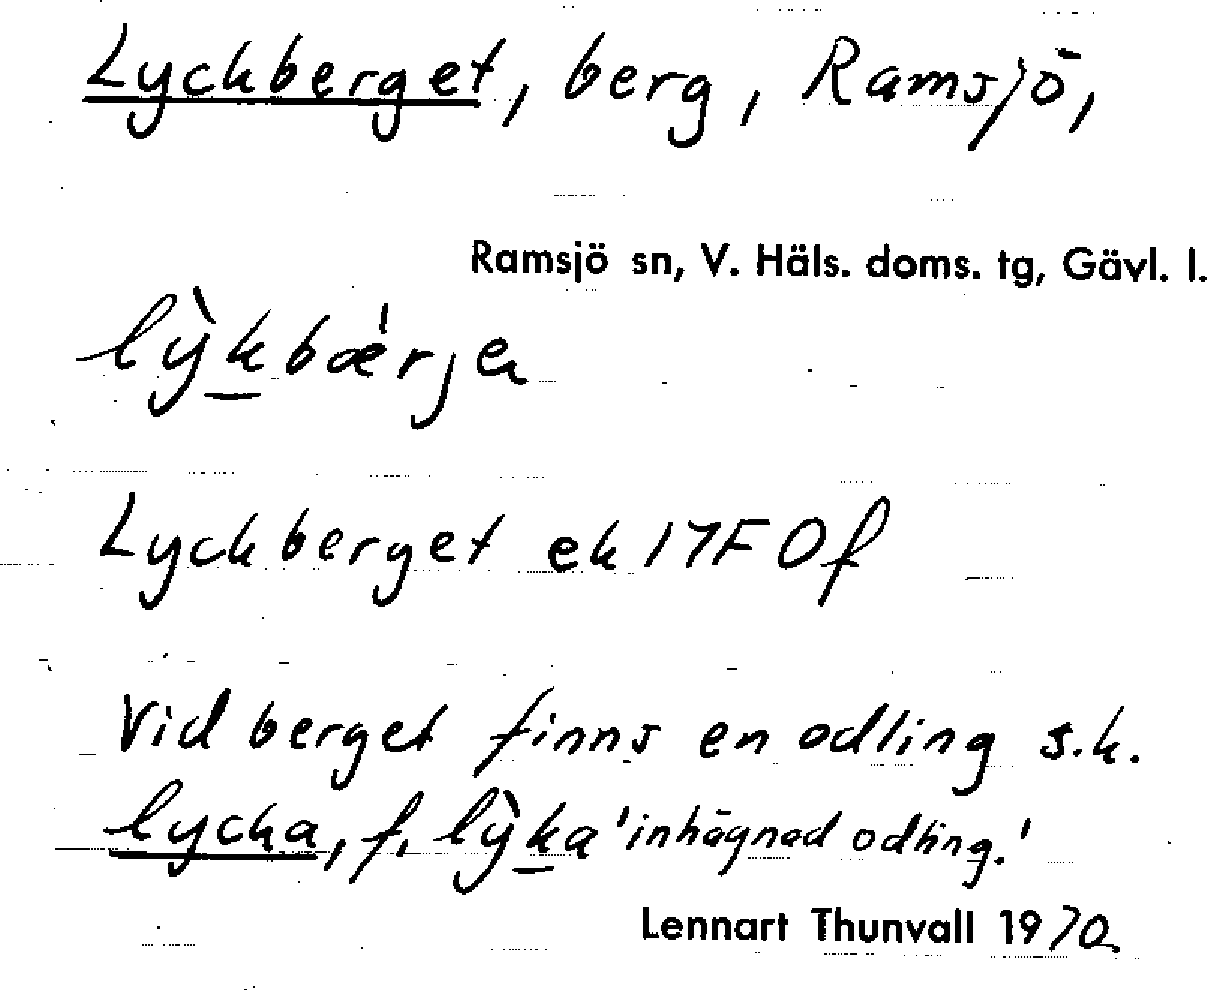 Lyckberget, berg, Ramsjö,
Ramsjö sn, V. Häls. doms. tg, Gävl. l.
lỳkbærja
Lyckberget ek 17F 0f
Vid berget finns en odling s.k.
lycka, f. lỳka 'inhägnad odling.'
Lennart Thunvall 1970